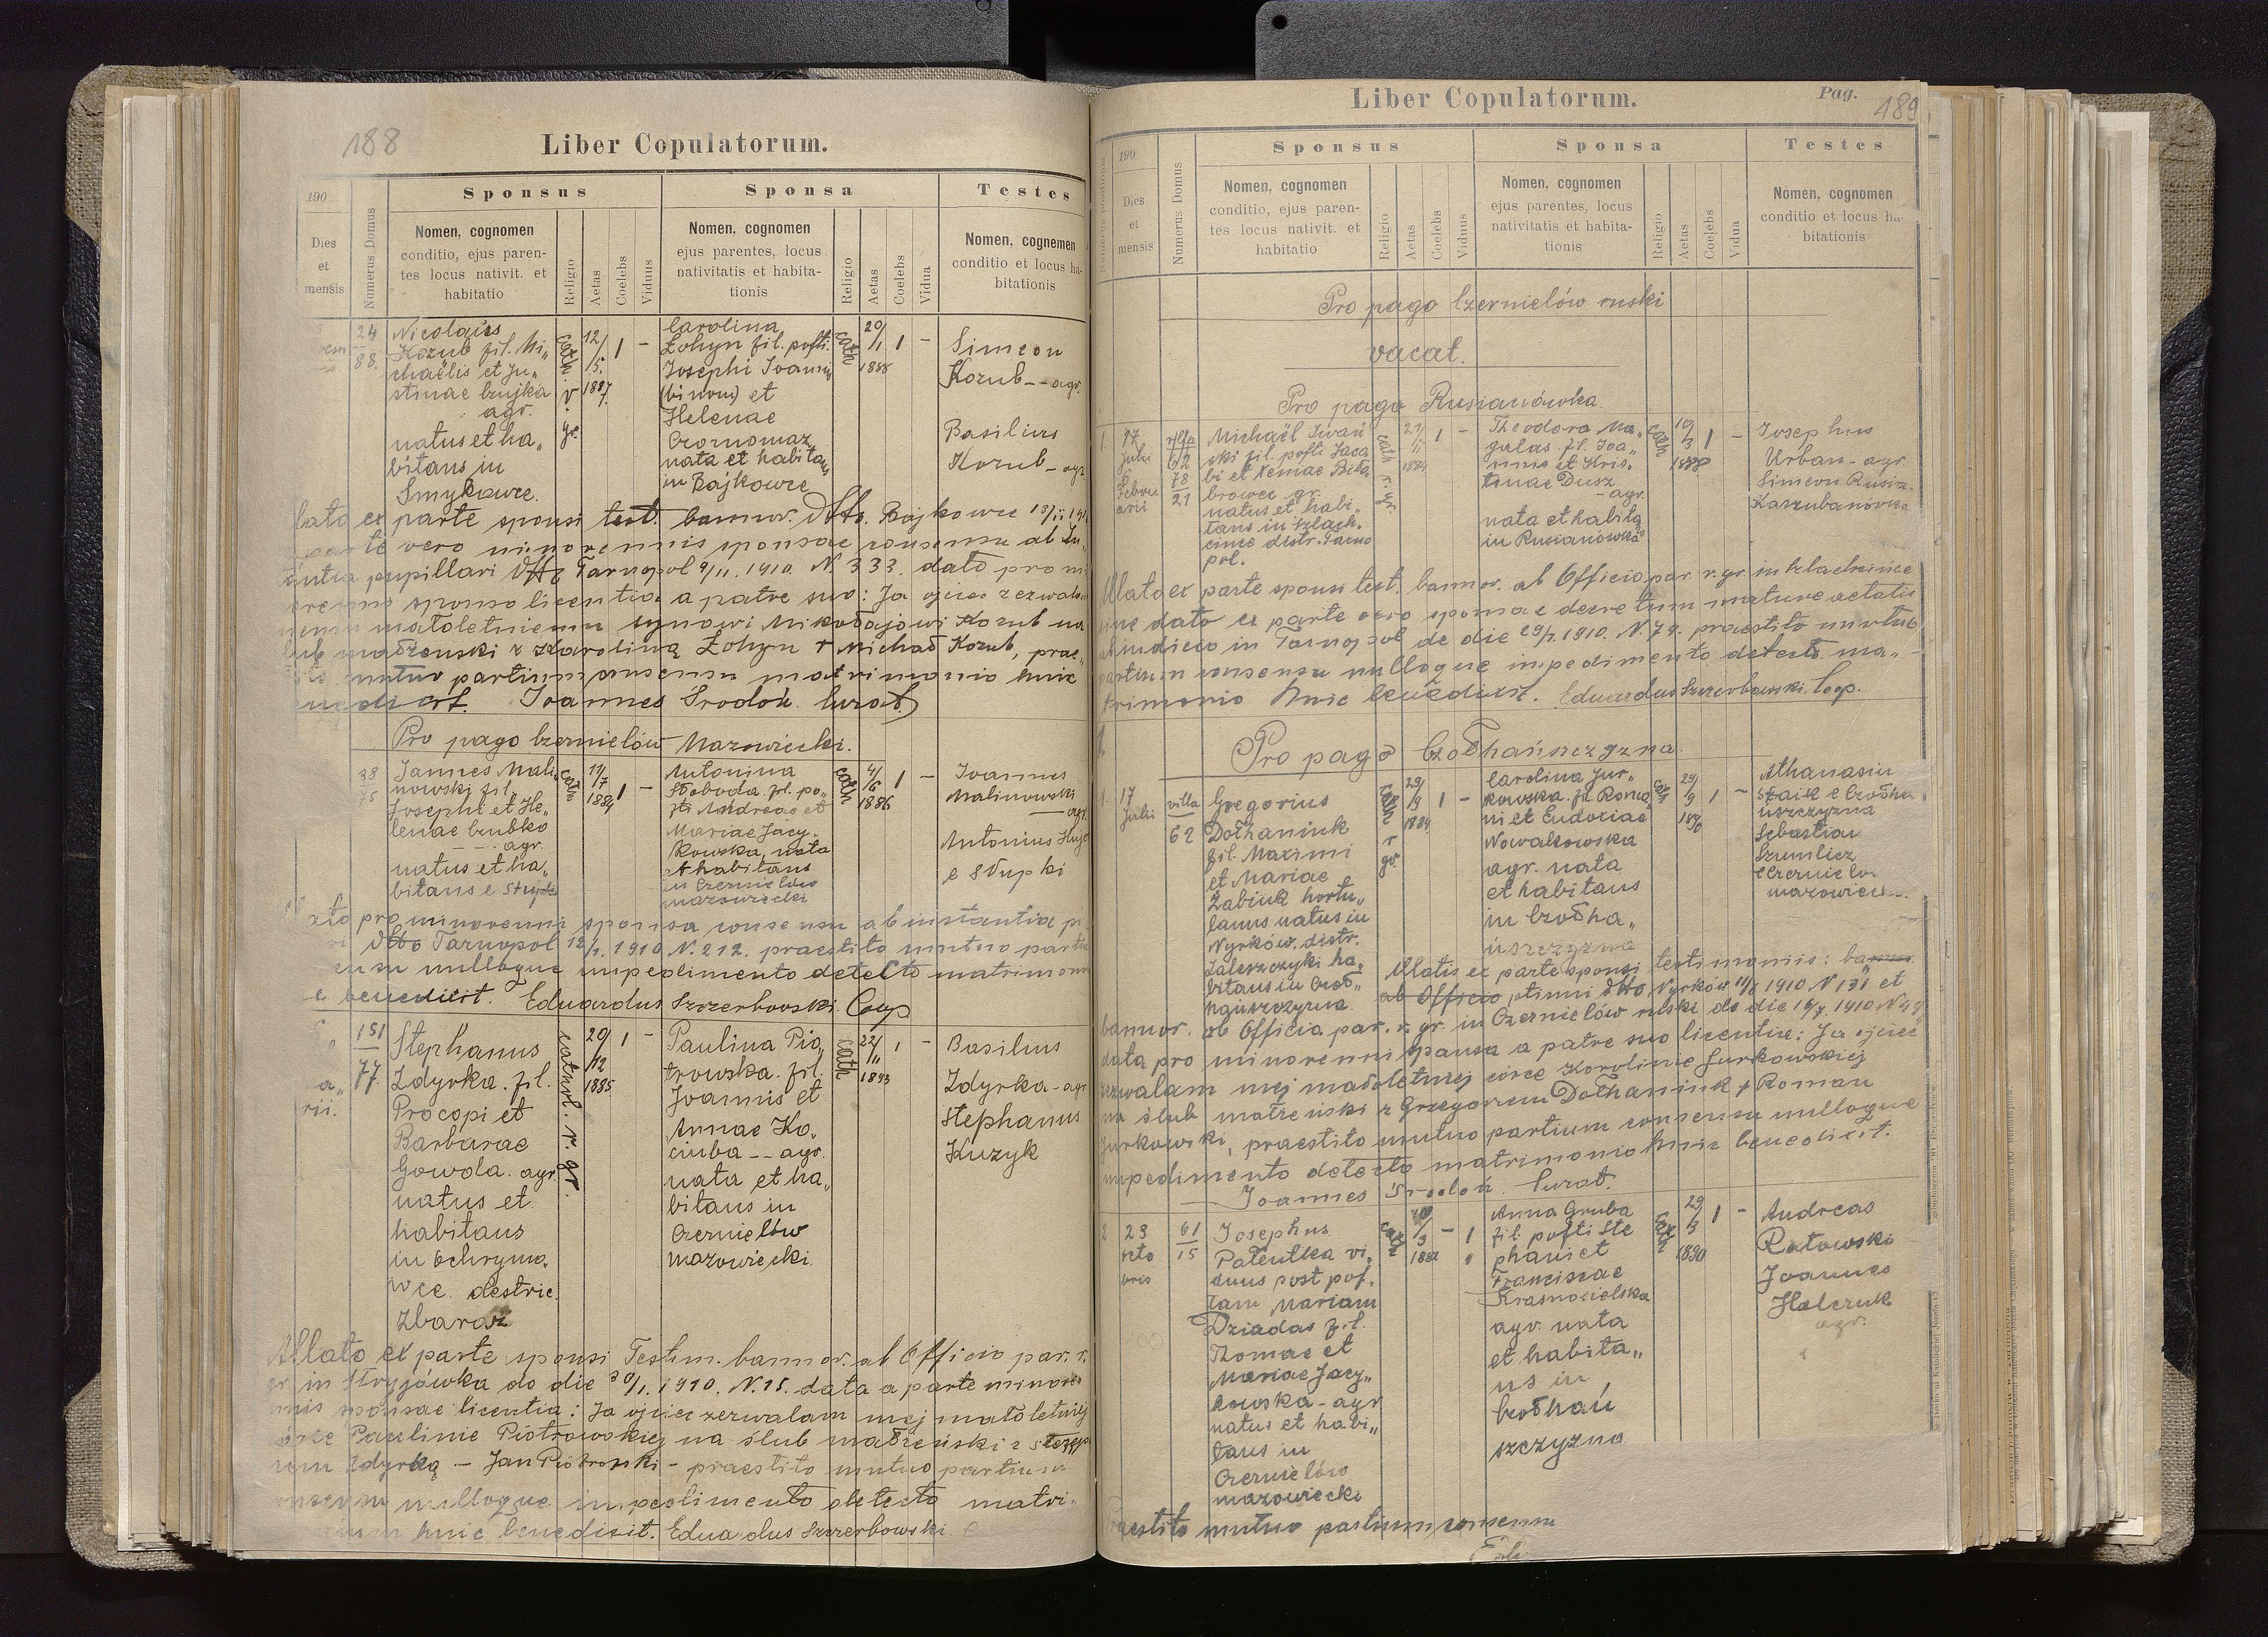 188
Liber Copulatorum.
190
Dies
et
mensis
Numerus Domus
Sponsus
Nomen, cognomen
conditio, ejus paren-
tes locus nativit. et
habitatio
Religio
Aetas
Coelebs
Viduus
Sponsa
Nomen, cognomen
ejus parentes, locus
nativitatis et habita-
tionis
Religio
Aetas
Coelebs
Vidua
Testes
Nomen, cognemen
conditio et locus ha-
bitationis
24
88.
Nicolaus
Kozub fil. Mi„
chaëlis et Ju„
stinae Czujka
agr.
natus et ha„
bitans in
Smykowce.
cath. r. gr.
12/
/5.
1887
1
-
Carolina
Łohyn fil. posti.
Josephi Joannis
(binom) et
Helenae
Czornomaz
nata et habitans
in Bajkowce
cath
20/
/1
1888
1
-
Simeon
Kozub -- agr.
Basilius
Kozub - agr
lato ex parte sponsi test. bannor. dtto. Bajkowce
parte vero minorennis sponsae consensu ab In„
stantia pupillari dtto Tarnopol 9/11. 1910. N. 333. dato pro mi
norenni sponso licentia a patre suo: Ja ojciec zezwalam
memu małoletniemu synowi Mikołajowi Kozub na
ślub małżeński z Karoliną Łohyn + Michał Kozub, prae„
stito mutuo partium consensu matrimonio huic
benedixit. Joannes Środoń Curat.
Pro pago Czernielów Mazowiecki.
38
75
Joannes Mali„
nowski fil.
Josephi et He„
lenae Czubko
- - agr.
natus et ha„
bitans e Stupki
cath
11/
/7
1884
1
-
Antonina
Słoboda. fil. po„
sti Andreae et
Mariae Jacy„
kowska, nata
et habitans
in Czernielów
mazowiecki
cath
4/
/6
1886
1
-
Joannes
Malinowski
- agr.
Antonius
e Słupki
dato pro minorenni sponsa consensu ab instantia pu
dtto Tarnopol 12/1. 1910. N. 212. praestito mutuo partium
consensu nulloque impedimento detecto matrimonio
benedicit. Eduardus Szczerbowski Coop
151
77.
rii.
Stephanus
Zdyrka. fil.
Procopi et
Barbarae
Gowda. agr.
natus et
habitans
in Ochrymo„
wce. destric.
Zbaraz
cathol. r. gr.
20/
12
1885
1
-
Paulina Pio„
trowska. fil.
Joannis et
Annae Ko„
ciuba -- agr.
nata et ha„
bitans in
Czernielów
mazowiecki.
cath
22/
11
1893
1
-
Basilius
Zdyrka - agr
Stephanus
Kuzyk
Allato ex parte sponsi Testim. bannor. ab Officio par. r.
gr. in Stryjówka do die 30/1. 1910. N. 15. data a parte minore„
nnis sponsae licentia: Ja ojciec zezwalam mej małoletniej
córce Paulinie Piotrowskiej na ślub małżeński z Szczep
nem Zdyrką - Jan Piotrowski - praestito mutuo partium
consensu nulloque impedimento detecto matri„
monium huic benedixit. Eduardus Szczerbowski
Liber Copulatorum.
Pag.
189
190
Dies
et
mensis
Numerus Domus
Sponsus
Nomen, cognomen
conditio, ejus paren-
tes locus nativit. et
habitatio
Religio
Aetas
Coelebs
Viduus
Sponsa
Nomen, cognomen
ejus parentes, locus
nativitatis et habita-
tionis
Religio
Aetas
Coelebs
Vidua
Testes
Nomen, cognomen
conditio et locus ha-
bitationis
Pro pago Czernielów ruski
vacat.
Pro pago Rusianówka.
1.
6
Febru
arii
villa
62
78
21
Michaël Iwań
ski fil. posti Jaco
bi et Xeniae Biło
browec gr.
natus et habi„
tans in Szlach.
cince distr. Tarno
pol.
cath r. gr.
21/
11
1884
1
-
Theodora Ma„
galas fil. Joa„
nnis et Kris„
tinae Dusz
- agr.
nata et habita
in Rusianówka
cath
10/
3
1888
1
-
Josephus
Urban - agr.
Simeon
Allato ex parte sponsi test. bannor. ab Officio par. r. gr. in Szlachcince
sine dato ex parte vero sponsae decretum mature aetatis
a Iudicio in Tarnopol de die 29/1. 1910. N. 79. praestito mutuo
partium consensu nulloque impedimento detecto ma„
trimonio huic benedixit. Eduardus Szczerbowski Coop.
Pro pago Czołhańszczyzna.
1.
17
Julii
villa
62
Gregorius
Dołhaniuk
fil. Maximi
et Mariae
Żabiuk hortu„
lanus natus in
Nyrków. distr.
Zaleszczyki ha„
bitans in Czoł„
hańszczyzna
cath r gr.
29/
/9
1884
1
-
Carolina Jur„
kowska. fil Roma
ni et Eudociae
Nowakowska
agr. nata
et habitans
in Czołha„
ńszczyzna
cath
29/
9
1890
1
-
Athanasiu
e Czołha
ńszczyzna
Sebastian
Szumlicz
e Czernielów
mazowiecki.
Allatis ex parte sponsi testimoniis: bannor
ab Officio ptinni dtto, Nyrków 1910 N 131 et
bannor. ab Officio par. r. gr. in Czernielów ruski do die 16/7. 1910 N 49
data pro minorenni sponsa a patre suo licentia: Ja ojciec
zezwalam mej małoletniej córce Karolinie Jurkowskiej
na ślub małżeński z Grzegorzem Dołhaniuk + Roman
Jurkowski, praestito mutuo partium consensu nulloque
impedimento detecto matrimonio huic benedixit.
Joannes Środoń. Curat.
2
23
octo
bris
61
15
Josephus
Patentka vi„
duus post pos„
tam Mariam
Dziadas fil.
Thomae et
Mariae Jacy„
kowska - agr
natus et habi„
tans in
Czernielów
mazowiecki
cath
/3
1882
-
1
Anna Gruba
fil. posti Ste
phani et
Franciscae
Krasnosielska
agr. nata
et habita„
ns in
Czołhań
szczyzna
cath
29/
3
1890
1
-
Andreas
Ratowski
Joannes
Halczuk
agr.
Praestito mutuo partium consensu